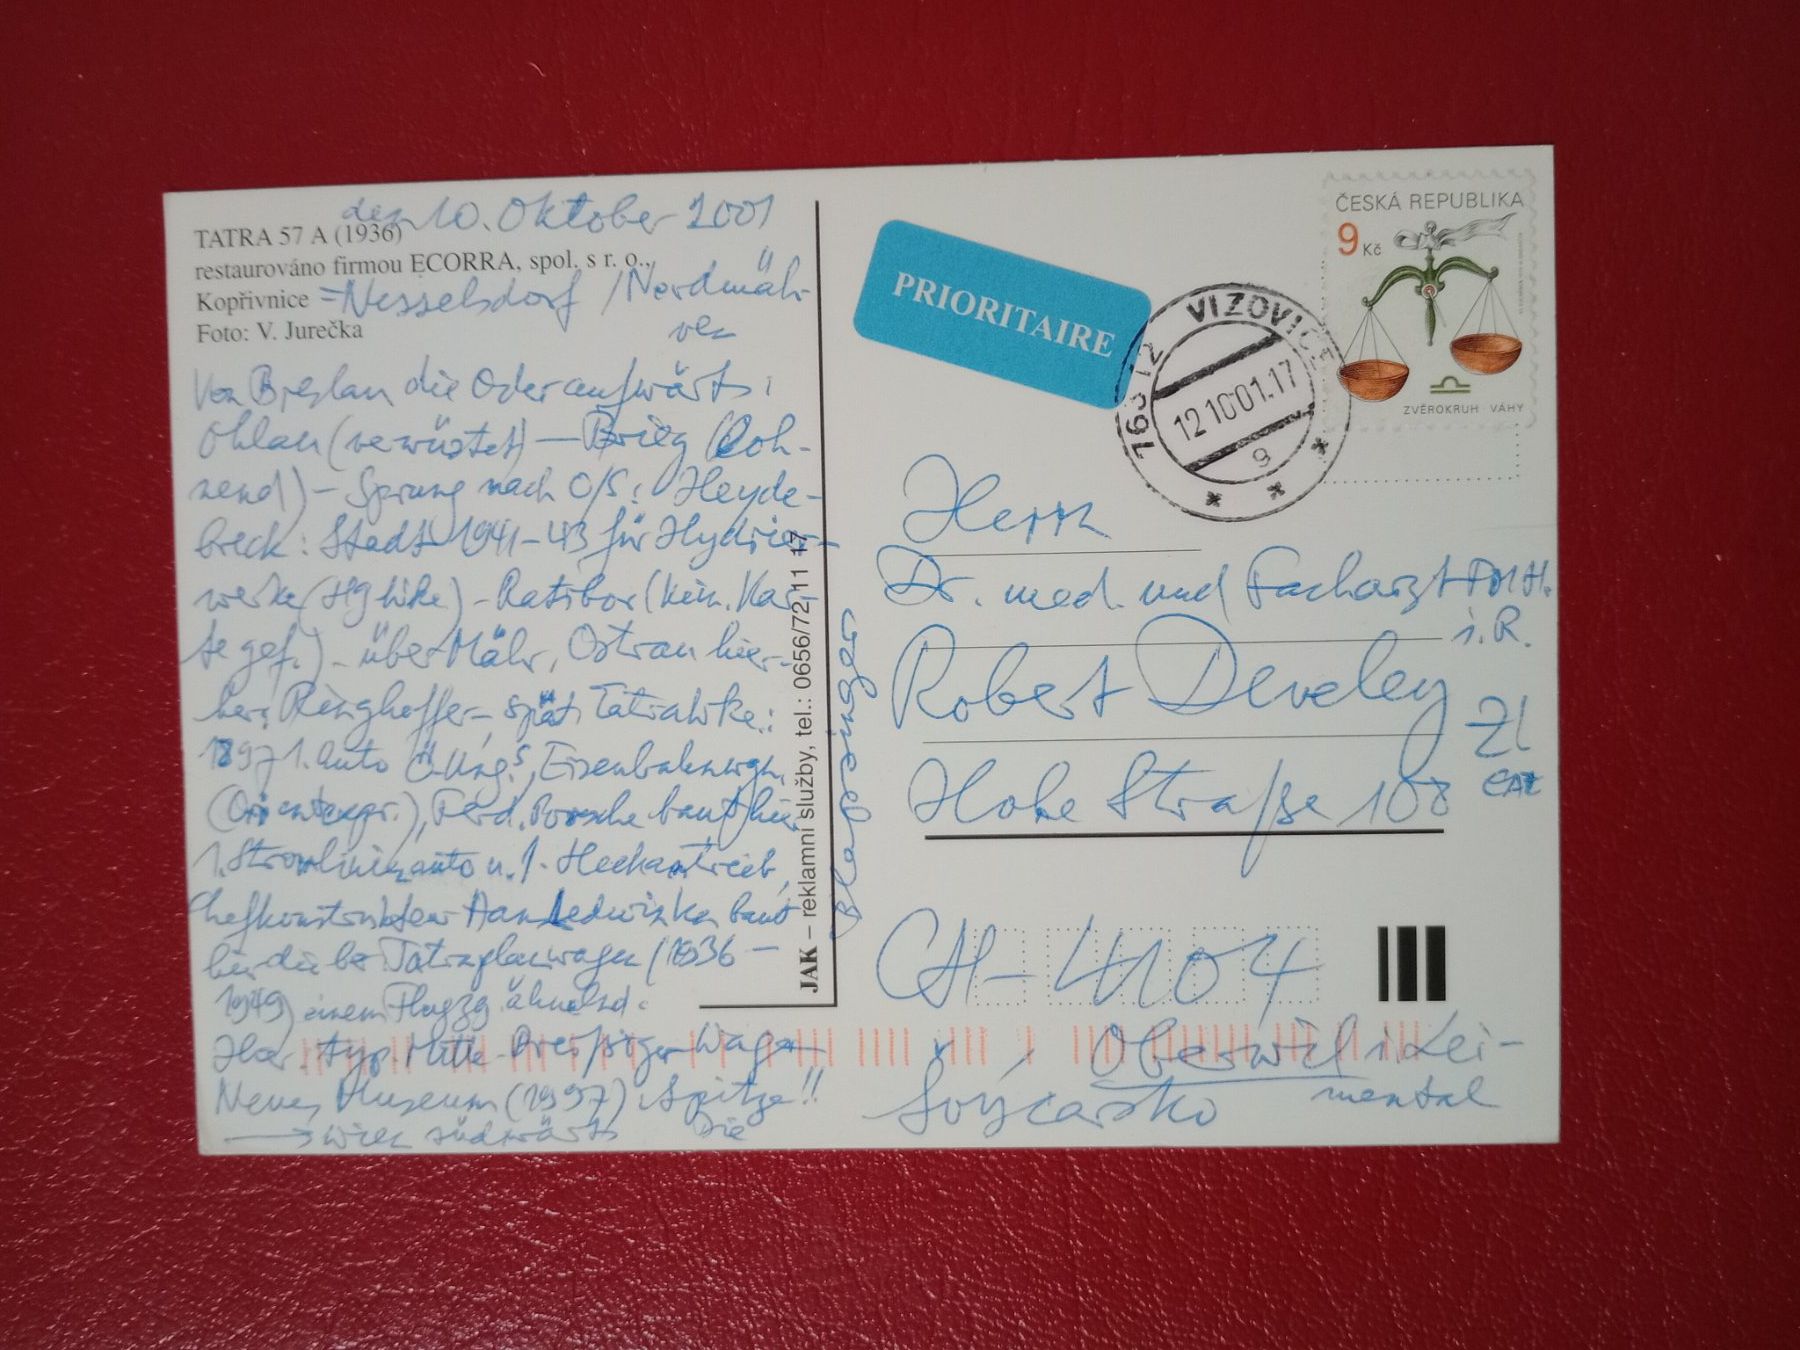 den 10. Oktober 2001
TATRA 57 A (1936)
restaurováno firmou ECORRA, spol. s r. o.,
Kopřivnice = Nesselsdorf / Nordmäh-
Foto: V. Jurečka
ren
Von Breslau die Oder aufwärts:
Ohlau (verwüstet) — Brieg (Loh-
nend) - Sprung nach O/S: Heyde-
breck: Stadt 1941-43 für Hydrier-
werke (Hglike) - Ratibor (kein. Kar-
te gef.) - über Mähr. Ostrau hier-
her: Ringhoffer-, spät. Tatrawke.:
1897 1. Auto Ö-Ung.s, Eisenbahnwgn.
(Orientexpr.), Ferd. Porsche baut hier
1. Stromlinienauto u. 1. Heckantrieb,
Chefkonstrukteur Hans Ledwinka baut
hier die Tatraplanwagen (1936 -
1949) einem Flugzg ähnelnd.
Wagen
Neues Museum (1997) Spitze!!
→ südwärts Die
JAK – reklamní služby, tel.: 0656/72 11 17
PRIORITAIRE
763 12 VIZOVICE
12.10.01.17
g
ČESKÁ REPUBLIKA
9 Kč
ZVĚROKRUH - VÁHY
Herrn
Dr. med. und Facharzt FMH.
i. R.
Robert Develey
Hohe Straße 108
CH-4104
Oberwil i. Lei-
mental
Švýcarsko